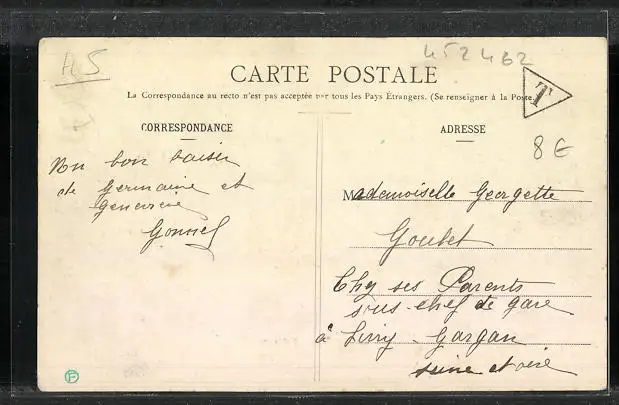 A5
452462
CARTE POSTALE
La Correspondance au recto n'est pas acceptée par tous les Pays Étrangers. (Se renseigner à la Poste)
T
CORRESPONDANCE
ADRESSE
8€
un bon baiser
de Germaine et
Geneviève
Mademoiselle Georgette
Goubet
Chez ses Parents
sous-chef de gare
à Livry-Gargan
Seine et oise
F